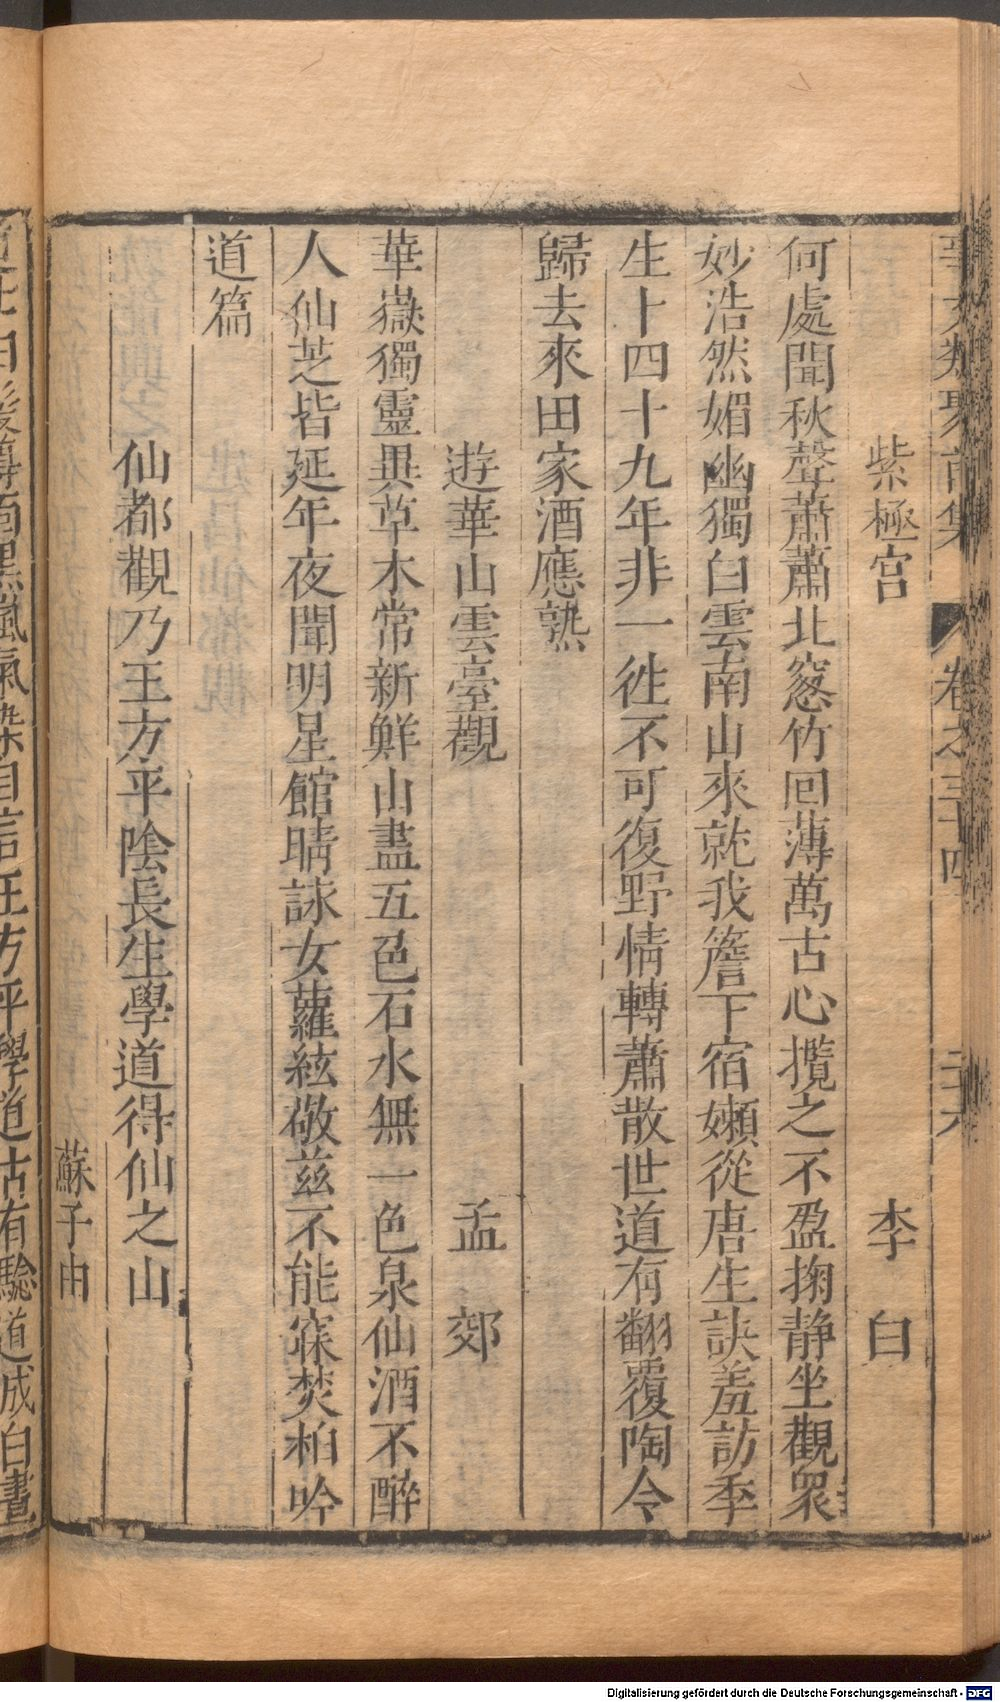 事文類聚前集 卷之三十四 二十六
紫極宮 李白
何處聞秋聲蕭蕭北窓竹回薄萬古心攬之不盈掬静坐觀衆
妙浩然媚幽獨白雲南山來就我簷下宿嬾從唐生訣羞訪季
生十四十九年非一徃不可復野情轉蕭散世道有翻覆陶令
歸去來田家酒應熟
遊華山雲臺觀 孟郊
華嶽獨靈異草木常新鮮山盡五色石水無一色泉仙酒不醉
人仙芝皆延年夜聞明星館時詠女蘿絃敬兹不能寐焚柏吟
道篇
仙都觀乃王方平陰長生學道得仙之山
蘇子由
道士白髮尊面黑嵐氣染自言王方平學道古有驗道成白晝
Digitalisierung gefördert durch die Deutsche Forschungsgemeinschaft - DFG